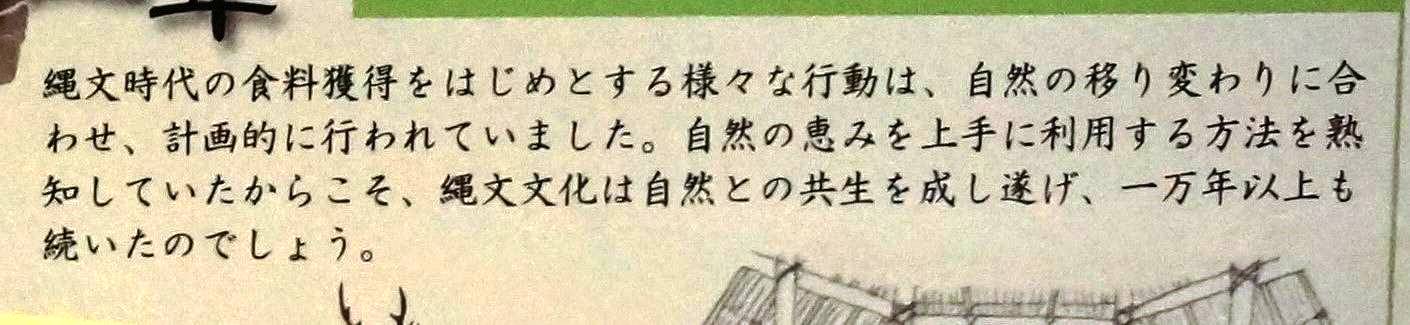 縄文時代の食料獲得をはじめとする様々な行動は、自然の移り変わりに合
わせ、計画的に行われていました。自然の恵みを上手に利用する方法を熟
知していたからこそ、縄文文化は自然との共生を成し遂げ、一万年以上も
続いたのでしょう。